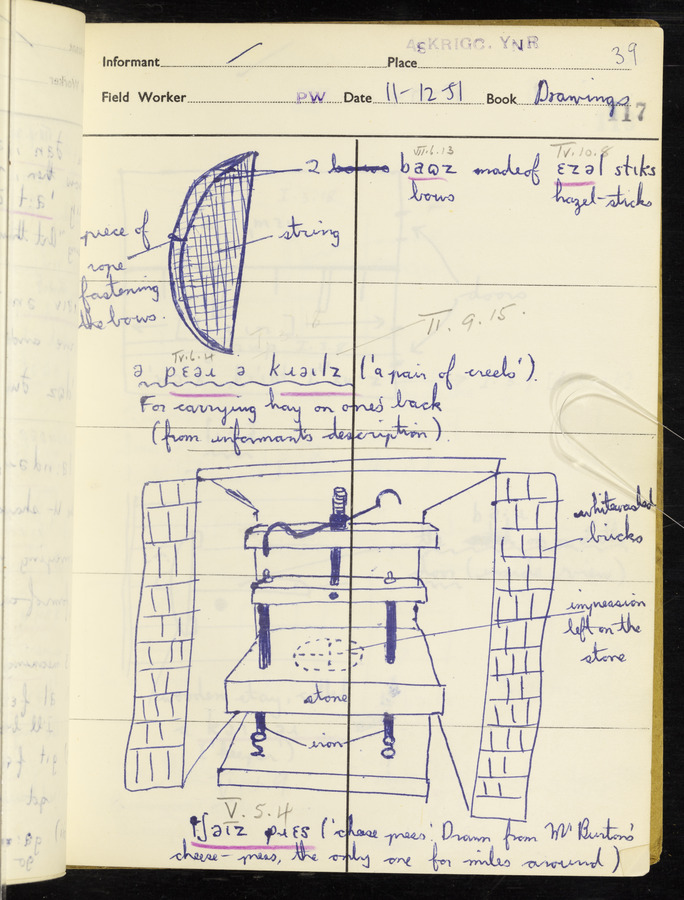 ASKRIGG. YNR
Informant / Place 39
Field Worker PW Date 11-12-51 Book Drawings
117
VII.6.13 IV.10.8
2 baʊz made of ɛzəl stiks
bows hazel-sticks
piece of
rope
fastening
the bows.
string
II.9.15.
IV.6.4
ə pɛəɹ ə kɹɪəɪlz ('a pair of creels').
For carrying hay on one's back
(from informant's description).
whitewashed
bricks
impression
left on the
stone
stone
iron
V.5.4
tʃəɪz pɹɛs ('cheese press'. Drawn from Mr Burton's
cheese-press, the only one for miles around)